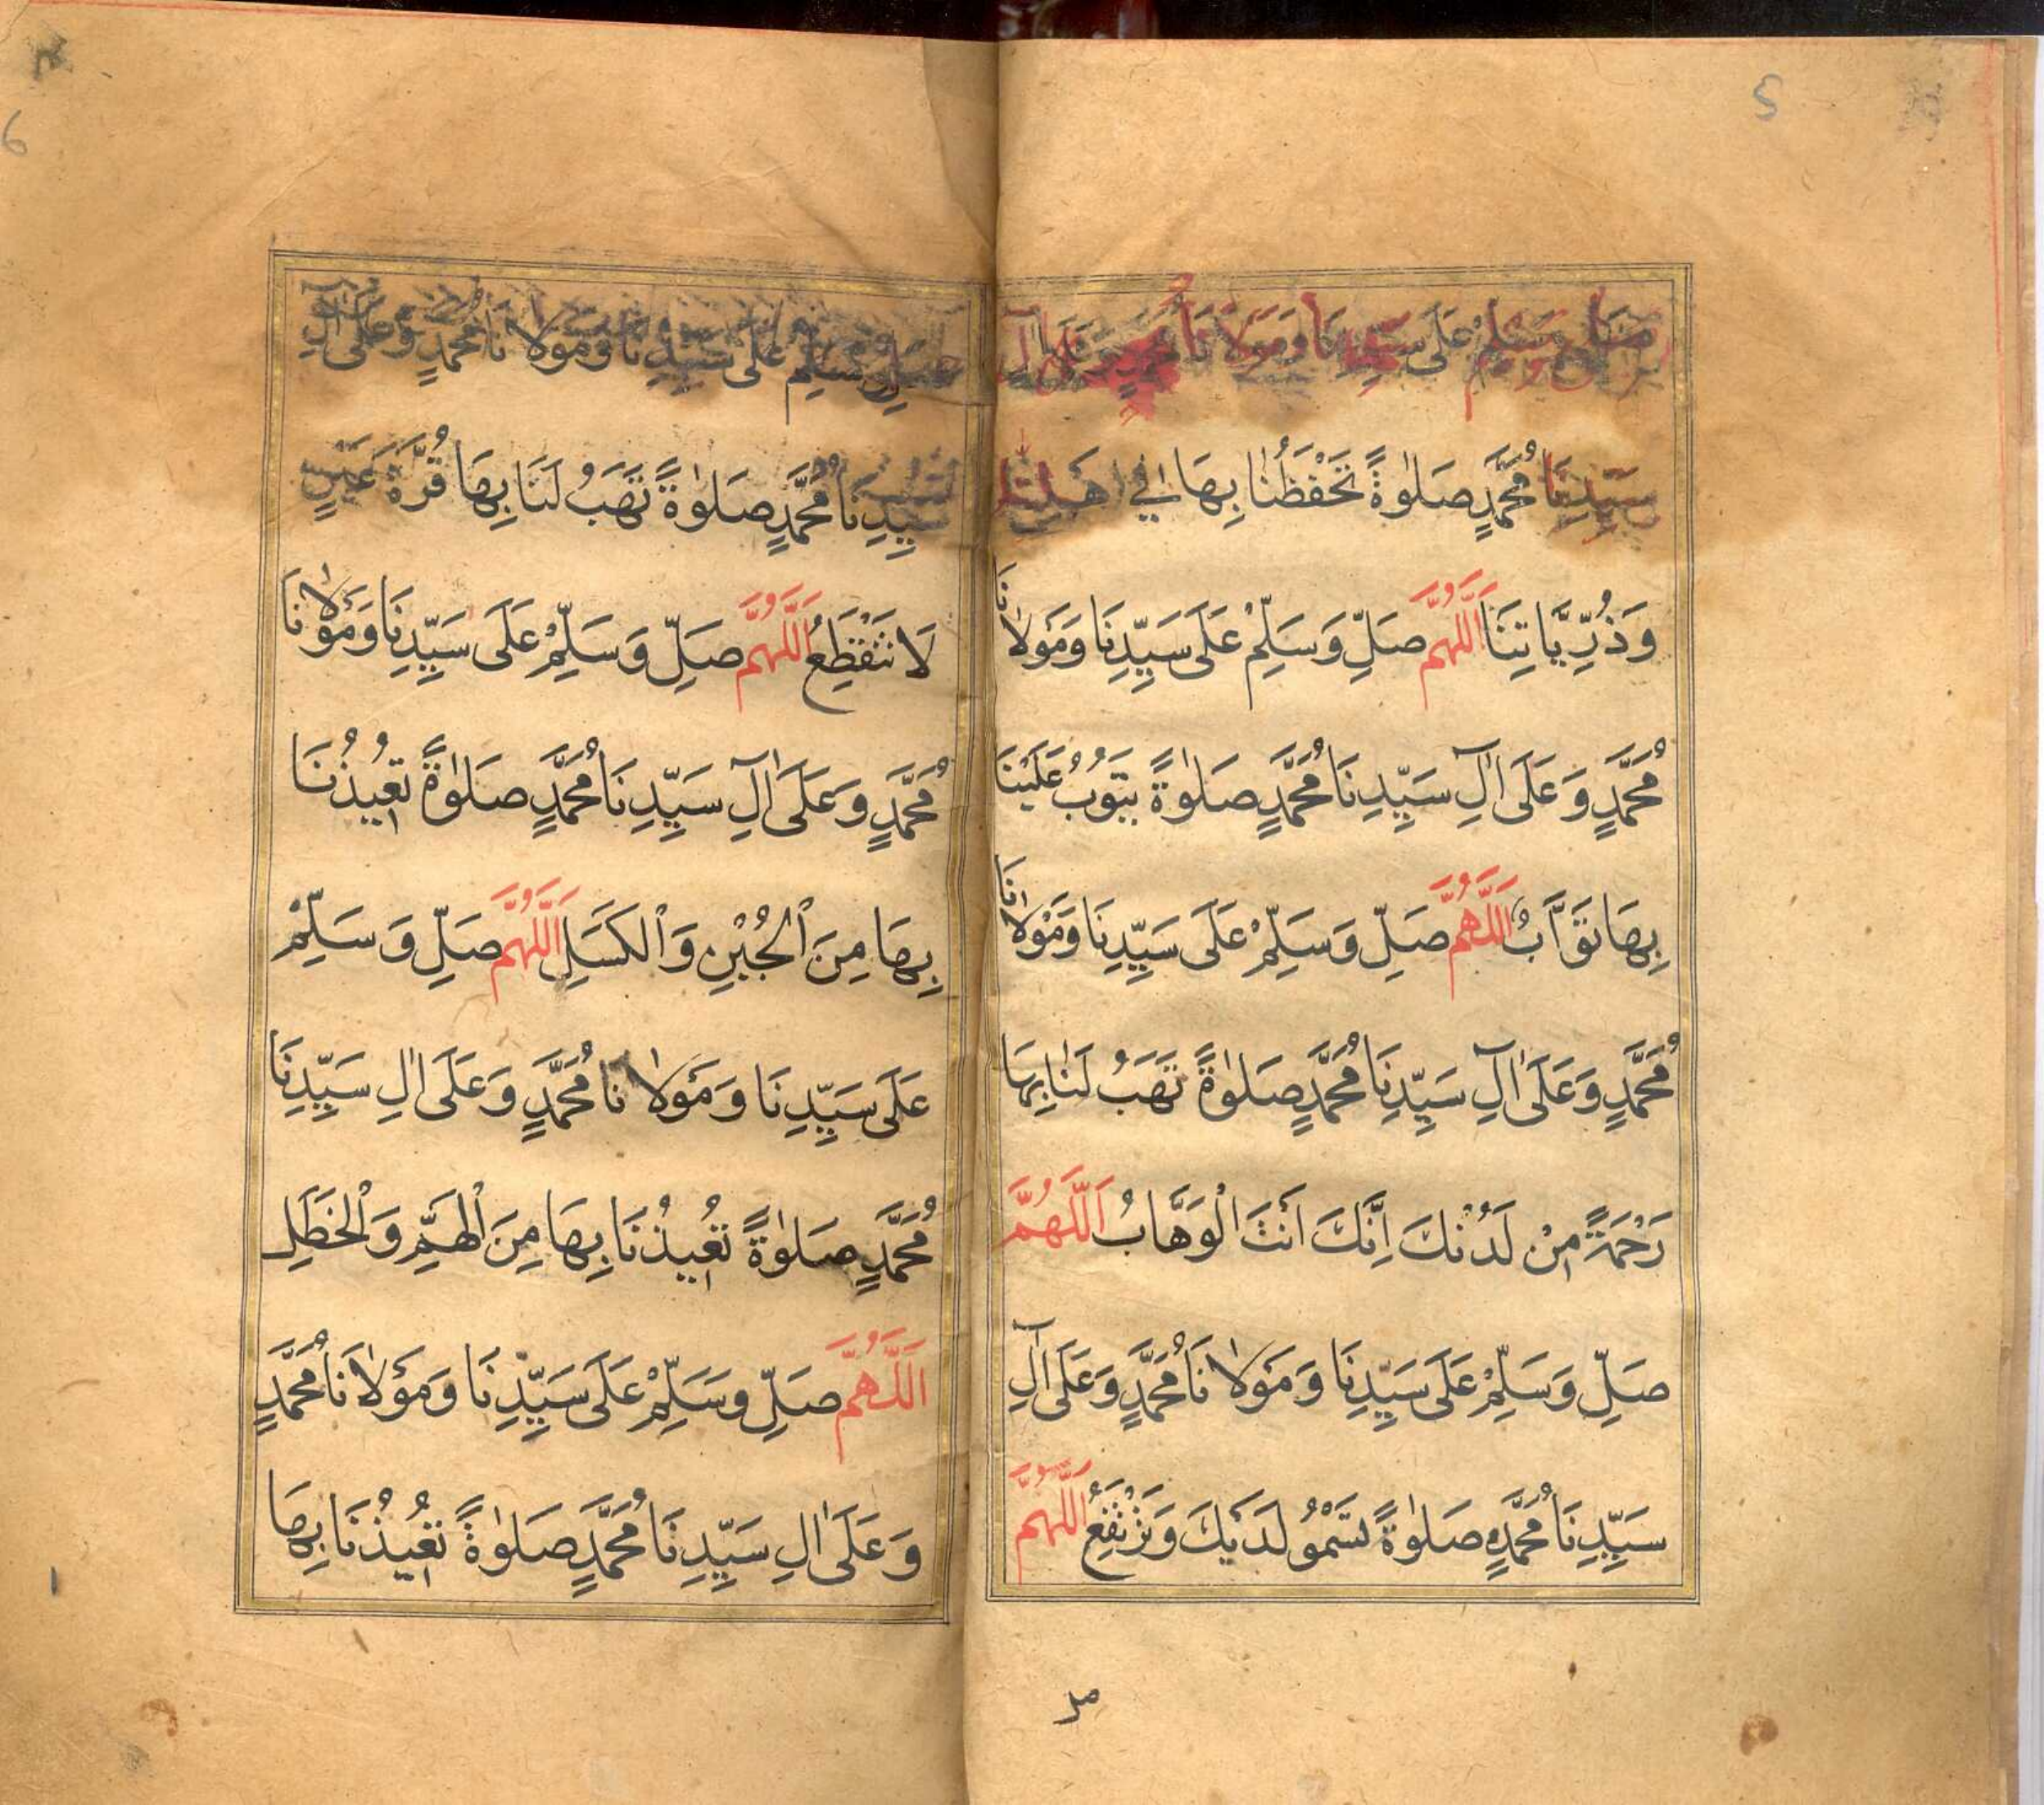 5
صَلِّ وَسَلِّمْ عَلَى سَيِّدِنَا وَمَوْلَانَا مُحَمَّدٍ وَعَلَى آلِ
سَيِّدِنَا مُحَمَّدٍ صَلٰوةً تَحْفَظُنَا بِهَا فِي اَهْلِنَا
وَذُرِّيَّاتِنَا اَللّٰهُمَّ صَلِّ وَسَلِّمْ عَلَى سَيِّدِنَا وَمَوْلَانَا
مُحَمَّدٍ وَعَلَى اٰلِ سَيِّدِنَا مُحَمَّدٍ صَلٰوةً يَتُوبُ عَلَيْنَا
بِهَا تَوَّابُ اَللّٰهُمَّ صَلِّ وَسَلِّمْ عَلَى سَيِّدِنَا وَمَوْلَانَا
مُحَمَّدٍ وَعَلَى اٰلِ سَيِّدِنَا مُحَمَّدٍ صَلٰوةً تَهَبُ لَنَا بِهَا
رَحْمَةً مِنْ لَدُنْكَ اِنَّكَ اَنْتَ الْوَهَّابُ اَللّٰهُمَّ
صَلِّ وَسَلِّمْ عَلَى سَيِّدِنَا وَمَوْلَانَا مُحَمَّدٍ وَعَلَى اٰلِ
سَيِّدِنَا مُحَمَّدٍ صَلٰوةً تَسْمُوُ لَدَيْكَ وَتَرْتَفِعُ اَللّٰهُمَّ
6
صَلِّ وَسَلِّمْ عَلَى سَيِّدِنَا وَمَوْلَانَا مُحَمَّدٍ وَعَلَى آلِ
سَيِّدِنَا مُحَمَّدٍ صَلٰوةً تَهَبُ لَنَا بِهَا قُرَّةَ عَيْنٍ
لَا تَنْقَطِعُ اَللّٰهُمَّ صَلِّ وَسَلِّمْ عَلَى سَيِّدِنَا وَمَوْلَانَا
مُحَمَّدٍ وَعَلَى اٰلِ سَيِّدِنَا مُحَمَّدٍ صَلٰوةً تُعِيذُنَا
بِهَا مِنَ الْجُبْنِ وَالْكَسَلِ اَللّٰهُمَّ صَلِّ وَسَلِّمْ
عَلَى سَيِّدِنَا وَمَوْلَانَا مُحَمَّدٍ وَعَلَى اٰلِ سَيِّدِنَا
مُحَمَّدٍ صَلٰوةً تُعِيذُنَا بِهَا مِنَ الْهَمِّ وَالْخَطَلِ
اَللّٰهُمَّ صَلِّ وَسَلِّمْ عَلَى سَيِّدِنَا وَمَوْلَانَا مُحَمَّدٍ
وَعَلَى اٰلِ سَيِّدِنَا مُحَمَّدٍ صَلٰوةً تُعِيذُنَا بِهَا